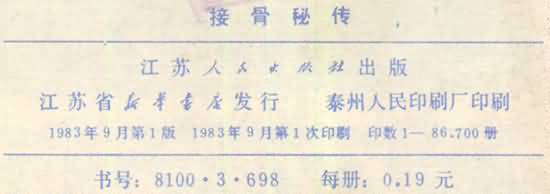 接骨秘传
江苏人民出版社出版
江苏省新华书店发行 泰州人民印刷厂印刷
1983年9月第1版 1983年9月第1次印刷 印数1—86.700册
书号：8100·3·698 每册：0.19元